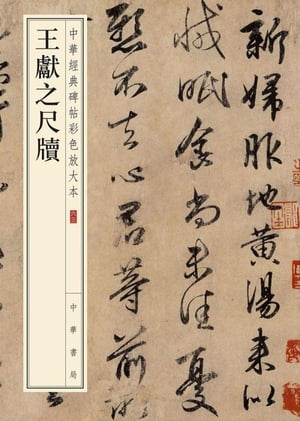 新婦服地黃湯來似
減眠食尚未佳憂
懸不去心君等前
中華經典碑帖彩色放大本
王獻之尺牘
中華書局